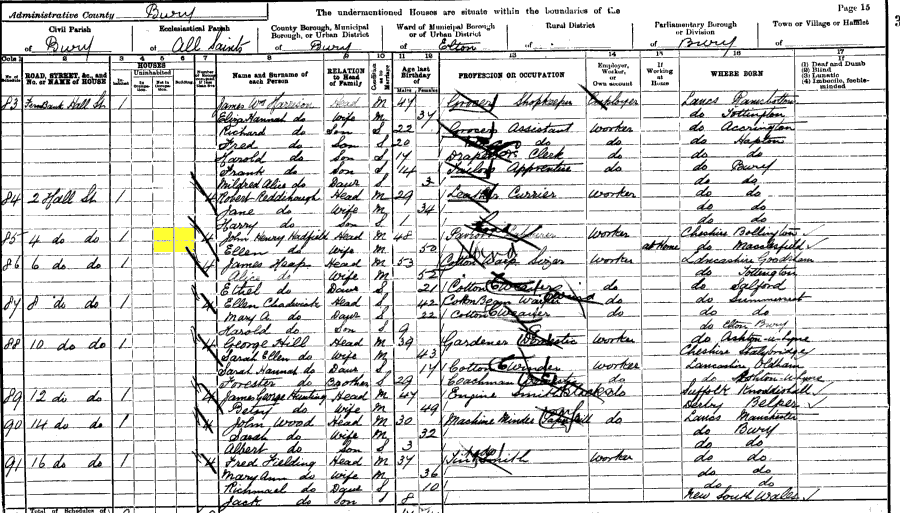 Administrative County Bury
The undermentioned Houses are situate within the boundaries of the
Page 15
Civil Parish
of Bury
Ecclesiastical Parish
of All Saints
County Borough, Municipal Borough, or Urban District
of Bury
Ward of Municipal Borough or of Urban District
of Elton
Rural District
of
Parliamentary Borough or Division
of Bury
Town or Village or Hamlet
of
Cols 1 2 3 4 5 6 7 8 9 10 11 12 13 14 15 16 17
ROAD, STREET, &c., and No. or NAME of HOUSE
HOUSES
Uninhabited
Name and Surname of each Person
RELATION to Head of Family
Condition as to Marriage
Age last Birthday of
Males Females
PROFESSION OR OCCUPATION
Employer, Worker, or Own account
If Working at Home
WHERE BORN
(1) Deaf and Dumb
(2) Blind
(3) Lunatic
(4) Imbecile, feeble-minded
83 Fernbank Hall St. 1 James Wm Harrison Head M 47 Grocer Shopkeeper Employer Lancs Ramsbottom
Eliza Hannah do Wife M 37 do Tottington
Richard do Son S 22 Grocers Assistant Worker do Accrington
Fred do Son S 20 do do do Hapton
Harold do Son S 17 Drapers Clerk do do do
Frank do Son S 14 Apprentice do do Bury
Mildred Alice do Daur S 3 do do
84 2 Hall St 1 4 Robert Reddihough Head M 29 Leather Currier Worker do do
Jane do Wife M 34 do do
Harry do Son S 1 do do
85 4 do do 1 4 John Henry Hadfield Head M 48 Worker Cheshire Bollington
Ellen do Wife M 50 at home do Macclesfield
86 6 do do 1 4 James Heap Head M 53 Cotton Warp Sizer Worker Lancashire Goodshaw
Alice do Wife M 52 do Tottington
Ethel do Daur S 21 Cotton Weaver do do Salford
87 8 do do 1 4 Ellen Chadwick Head S 42 Cotton Beam Warper do do Summerseat
Mary A. do Daur S 22 Cotton Weaver do do do
Harold do Son S 9 do Elton Bury
88 10 do do 1 4 George Hill Head M 39 Gardener Domestic Worker do Ashton-u-Lyne
Sarah Ellen do Wife M 43 Cheshire Stalybridge
Sarah Hannah do Daur S 17 Cotton Winder Worker Lancashire Oldham
Forester do Brother S 29 Coachman do do Ashton-u-Lyne
89 12 do do 1 4 James George Hunting Head M 47 Engine Smith do Suffolk
Betsy do Wife M 49 Derby Belper
90 14 do do 1 4 John Wood Head M 30 Machine Minder do Lancs Manchester
Sarah do Wife M 32 do Bury
Albert do Son S 3 do do
91 16 do do 1 4 Fred Fielding Head M 37 Tin Smith Worker do do
Mary Ann do Wife M 36 do do
do Daur S 10 do do
Jack do Son S 8 New South Wales
Total of Schedules of